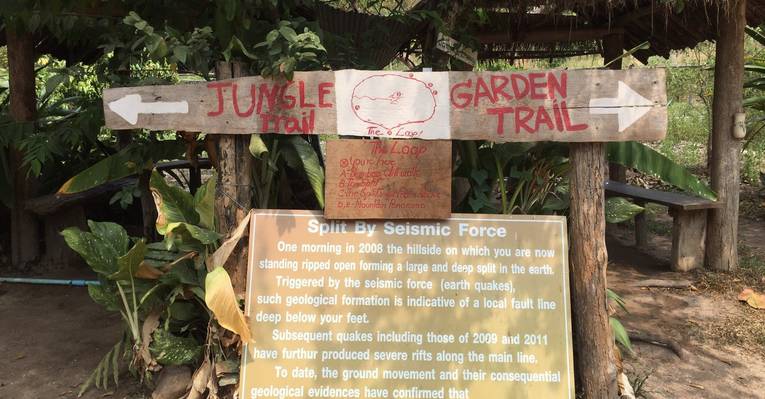 JUNGLE
Trail
The Loop!
GARDEN
TRAIL
The Loop
Your here
Split By Seismic Force
One morning in 2008 the hillside on which you are now
standing ripped open forming a large and deep split in the earth.
Triggered by the seismic force (earth quakes),
such geological formation is indicative of a local fault line
deep below your feet.
Subsequent quakes including those of 2009 and 2011
have furthur produced severe rifts along the main line.
To date, the ground movement and their consequential
geological evidences have confirmed that